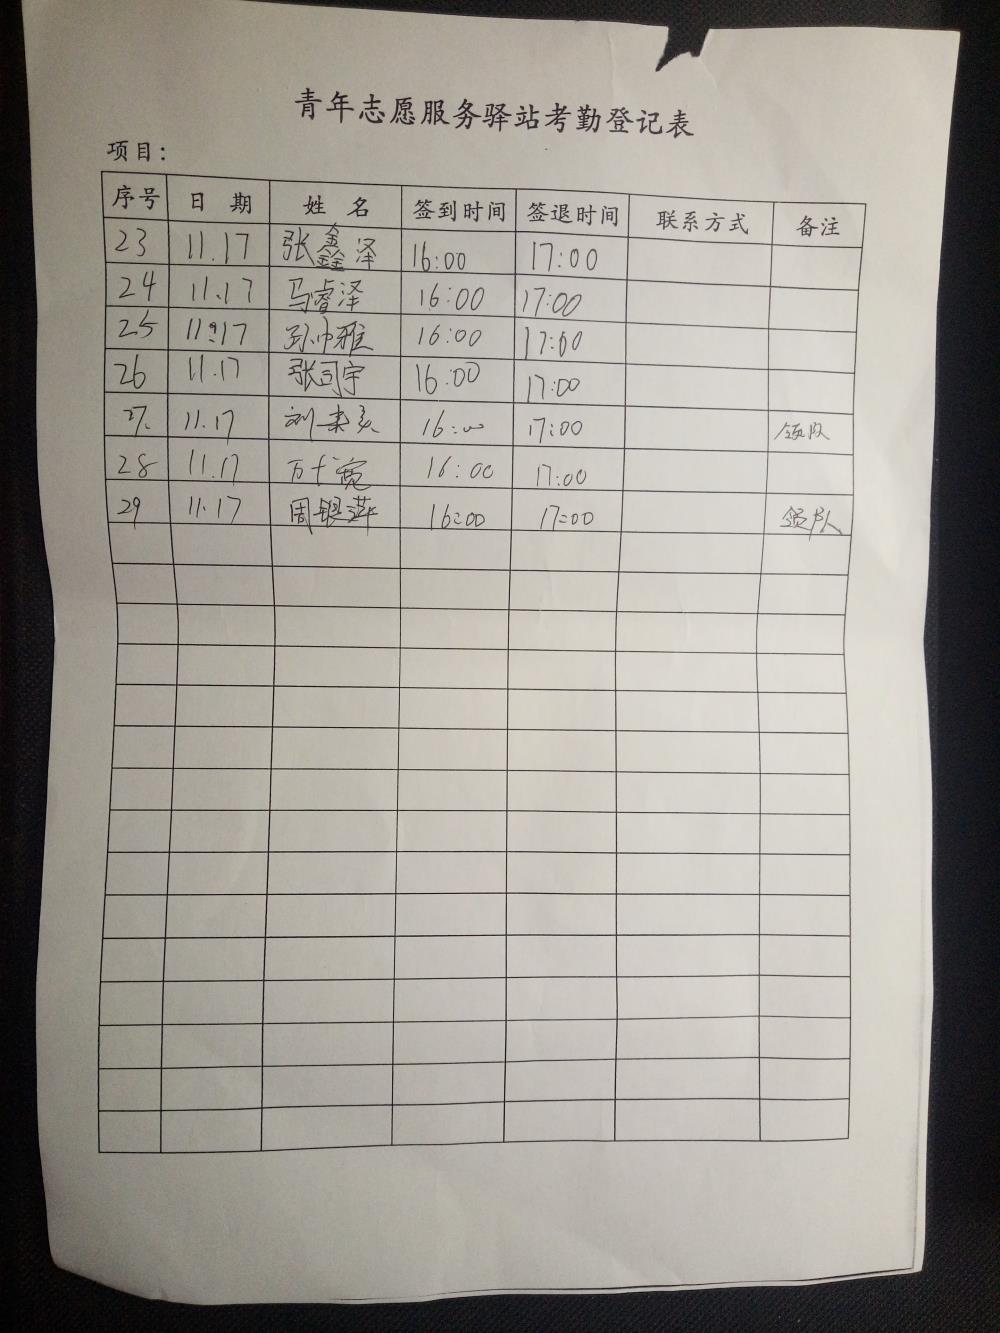 青年志愿服务驿站考勤登记表
项目：
序号 日 期 姓 名 签到时间 签退时间 联系方式 备注
23 11.17 张鑫泽 16:00 17:00
24 11.17 马睿泽 16:00 17:00
25 11.17 孙中雅 16:00 17:00
26 11.17 张司宇 16:00 17:00
27. 11.17 刘 16:00 17:00 领队
28 11.17 万 宽 16:00 17:00
29 11.17 周银萍 16:00 17:00 领队